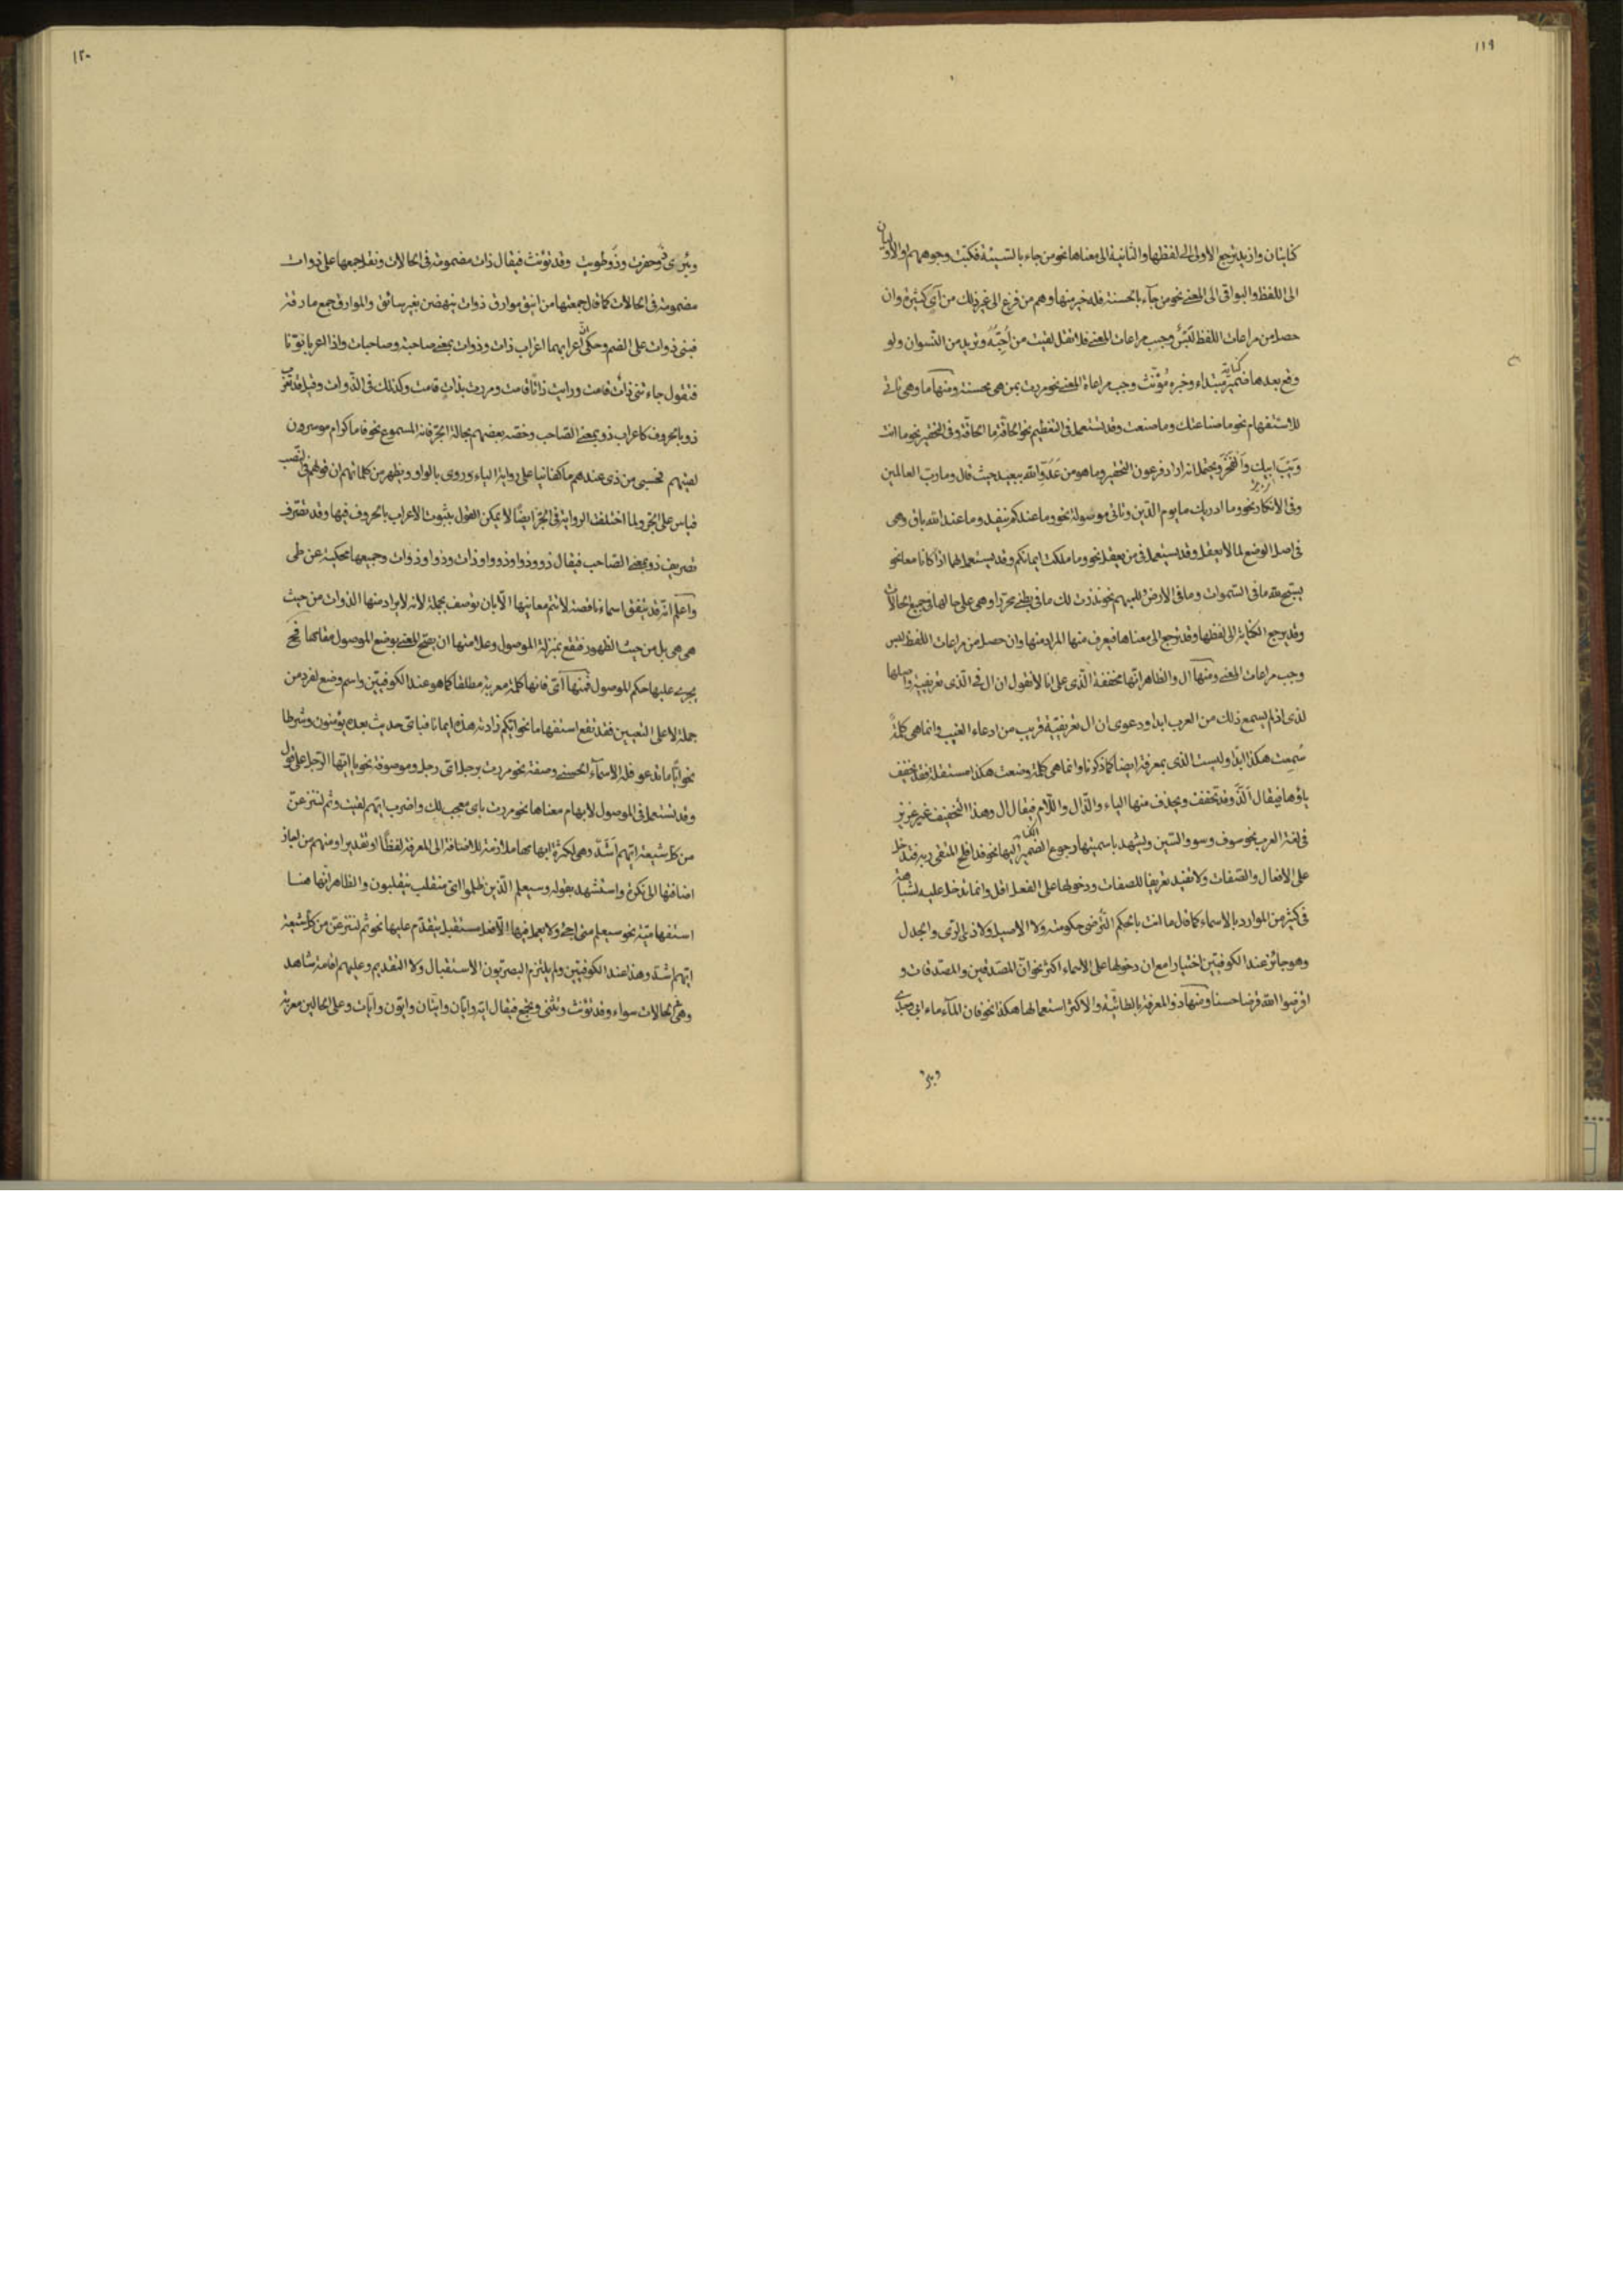 ١١٩
كنايتان وازيد يرجع الاولى الى لفظها والثانية الى معناها نحو من جاء بالسيئة فكبت وجوههم والاوليان
الى اللفظ والبواقى الى المعنى نحو من جآء بالحسنة فله خير منها وهم من فزع الى غير ذلك من آي كثيرة وان
حصل من مراعات اللفظ لَبْسٌ وجب مراعات المعنى فلا تقل لقيت من اُحِبُّهُ وتريد من النسوان ولو
وقع بعدها ضمير كناية مبتداء وخبره مُؤنّث وجب مراعاة المعنى نحو مررت بمن هى محسنة ومنها ما وهى تاتى
للاستفهام نحو ما ضاعتك وما صنعت وقد تستعمل فى التعظيم نحو الحاقّة ما الحاقّة وفى التحقير نحو ما انت
وَيْبَ ابيك وَالفخرُ ويحتمل انه اراد فرعون التحقير وما هو من عَدَوّ الله ببعيد حيث قال وما ربّ العالمين
وفى الانكار نحو وما ادريك ما يوم الدّين وتاتى موصولة نحو وما عندكم ينفد وما عند الله باق وهى
فى اصل الوضع لما لا يعقل وقد يستعمل فى من يعقل نحو وما ملكت ايمانكم وقد يستعمل لهما اذا كانا معا نحو
يسبّح لله ما فى السّموات وما فى الارض وللمبهم نحو نذرت لك ما فى بطنى محرّرا وهى على حالها فى جميع الحالات
وقد يرجع الكناية الى لفظها وقد ترجع الى معناها فيعرف منها المراد منها وان حصل من مراعات اللفظ لبس
وجب مراعات المعنى ومنها ال والظاهر انها مخففة الّذى على انا لا نقول ان ال فى الّذى تعريفية واصلها
لذى اذ لم يسمع ذلك من العرب ابدا ودعوى ان ال تعريفيّة قريب من ادعاء الغيب وانما هى كلمةٌ
سُمِعت هكذا ابدًا وليست الذى بمعرفة ايضا كما ذكرنا وانما هى كلمة وضعت هكذا مستقلة فقد تخفف
ياؤها فيقال اَلَّذْ وقد تخفف ويحذف منها الياء والذّال واللّام فيقال ال وهذا التخفيف غير عزيز
فى لغة العرب نحو سوف وسو والسّين ويشهد باسميتها رجوع الضمير اليها نحو قد افلح المتقى ربه فتدخل
على الافعال والصّفات ولا تفيد تعريفا للصفات ودخولها على الفعل اقل وانما تدخل عليه لشباهته
فى كثير من الموارد بالاسماء كما قال ما انت بالحكم التُرضى حكومته ولا الاصيل ولا ذى الرّى والجدل
وهو جائز عند الكوفيّين اختيارا مع ان دخولها على الاسماء اكثر نحو انّ المصّدّقين والمصّدّقات و
اقرضوا الله قرضا حسنا ومنها ذو المعرفة بالطائيّة والاكثر استعمالها هكذا نحو فان المآء ماء ابى وجدّى
وبئرى
١٢٠
وبئرى ذو حفرت وذو طويت وقد تؤنث فيقال ذات مضمومة فى الحالات ونقل جمعها على ذوات
مضمومة فى الحالات كما قال جمعتها من اينق موارق ذوات ينهضن بغير سائق والموارق جمع مارقة
فبنى ذوات على الضم وحكى اعرابهما اعراب ذات وذوات بمعنى صاحبة وصاحبات واذا اعربا نوّنا
فتقول جاءتنى ذاتٌ قامت ورايت ذاتًا قامت ومررت بذاتٍ قامت وكذلك فى الذّوات وقيل قد تعرب
ذو بالحروف كاعراب ذو بمعنى الصّاحب وخصّه بعضهم بحالة الجرّ فانه المسموع نحو فاما كرام موسرون
لقيتهم فحسبى من ذى عندهم ما كفانيا على رواية الياء وروى بالواو ويظهر من كلماتهم ان قولهم فى النّصب
قياس على الجرّ ولما اختلفت الرواية فى الجرّ ايضًا لا يمكن القول بثبوت الاعراب بالحروف فيها وقد تصّرف
تصريف ذو بمعنى الصّاحب فيقال ذو وذوا وذووا وذات وذوا وذوات وجميعها محكية عن طى
واعلم انّه قد يتّفق اسماء ناقصة لا تتم معانيها الّا بان توصف بجملة لانه لا يراد منها الذوات من حيث
هى هى بل من حيث الظهور فتقع بمنزلة الموصول وعلامتها ان يصحّ المعنى بوضع الموصول مقامها فح
يجرى عليها حكم الموصول فمنها اَىّ فانها كلمة معربة مطلقا كما هو عند الكوفيّين واسم وضع لفرد من
جملة لا على التعيين فقد تقع استفهاما نحو ايّكم زادته هذه ايمانا فباىّ حديث بعده يؤمنون وشرطا
نحو ايًّا ما تدعو فله الاسمآء الحسنى وصفة نحو مررت برجل اىّ رجل وموصوفة نحو يا ايّها الرّجل على قول
وقد تستعمل فى الموصول لابهام معناها نحو مررت باىّ معجب لك واضرب ايّهم لقيت وثم لننزعنّ
من كل شيعة ايّهم اَشَدّ وهى لكثرة ابهامها ملازمة للاضافة الى المعرفة لفظًا او تقديرا ومنهم من اجاز
اضافتها الى نكرة واستشهد بقوله وسيعلم الّذين ظلموا اىّ منقلب ينقلبون والظاهر انّها هنا
استفهاميّة نحو سيعلم متى اجئ ولا يعمل فيها الّا فعل مستقبل يتقدّم عليها نحو ثم لننزعنّ من كل شيعة
ايّهم اشدّ وهذا عند الكوفيّين ولم يلتزم البصريّون الاستقبال ولا التقديم وعليهم اقامة شاهد
وهى فى الحالات سواء وقد تؤنّث وتثنى وتجمع فيقال ايّة وايّان وايّتان وايّون وايّات وعلى الحالين معربة